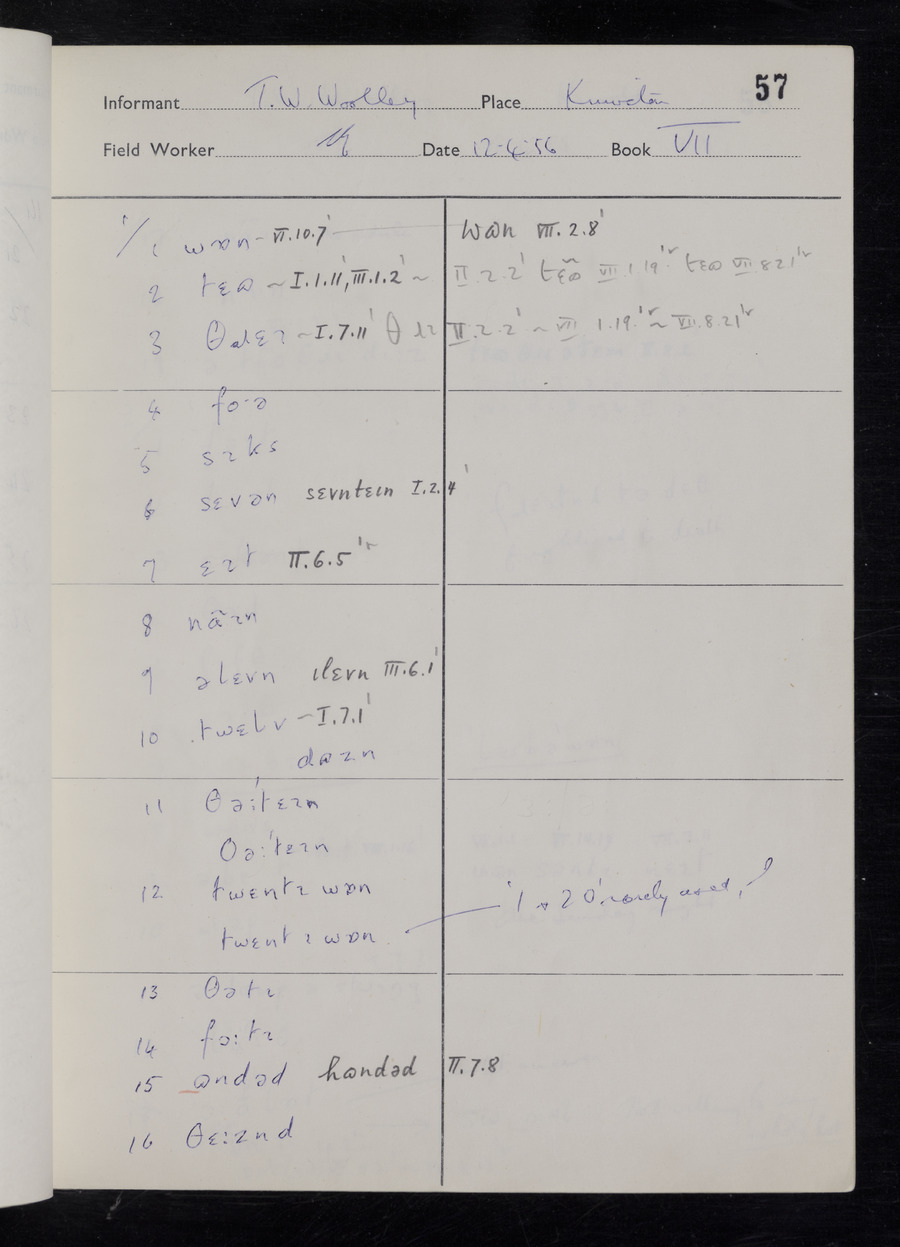 57
Informant T.W. Woolley Place
Field Worker Date 12·4·56 Book VII
1/ 1 wɒn – VI.10.7' wɷn VII.2.8'
2 tɛɷ ~ I.1.11', III.1.2' ~ II.2.2' VII.1.19'ʳ tɛɷ VII.8.21'ʳ
3 ~ I.7.11' II.2.2' ~ VII 1.19'ʳ ~ VII.8.21'ʳ
4 fo·ə
5 sɪks
6 sɛvən sɛvntɛɪn I.2.4'
7 ɛɪt II.6.5'ʳ
8 nãɪn
9 əlɛvn ɪlɛvn III.6.1'
10 twɛlv – I.7.1'
dɷzn
11 θəːˈtɛɪn
θəːˈtɛɪn
12 twɛntɪ wɒn '1 + 20' rarely used,
twɛntɪ wɒn
13 θətɪ
14 fɔːtɪ
15 ɷndəd hɷndəd II.7.8
16 θɛːznd